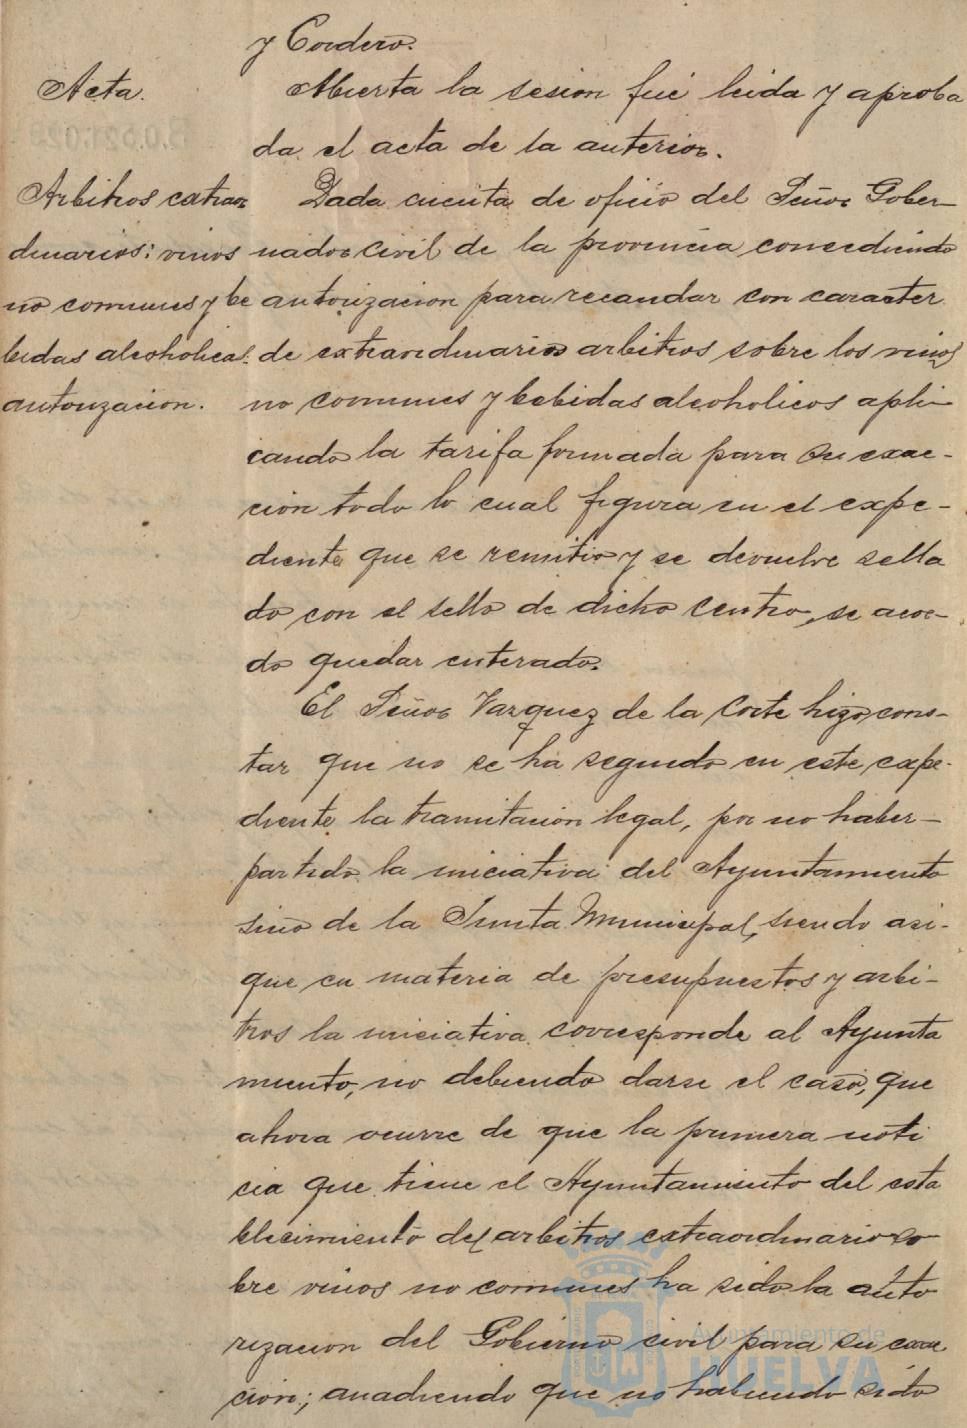 y Cordero.
Acta.
Abierta la sesion fué leida y aproba
da el acta de la anterior.
Arbitros extraor
dinarios: vinos
no comunes y be
bidas alcoholicas.
autorizacion.
Dada cuenta de oficio del Señor Gober-
nador civil de la provincia concediendo
autorizacion para recaudar con caracter
de extraordinarios arbitros sobre los vinos
no comunes y bebidas alcoholicos apli-
cando la tarifa formada para su exac-
cion todo lo cual figura en el expe-
diente que se remitio y se devuelve sella
do con el sello de dicho centro, se acor-
do quedar enterado.
El Señor Vazquez de la Corte hizo cons-
tar que no se ha seguido en este expe-
diente la tramitacion legal, por no haber-
partido la iniciativa del Ayuntamiento
sino de la Junta Municipal, siendo asi-
que en materia de presupuestos y arbi-
tros la iniciativa corresponde al Ayunta
miento, no debiendo darse el caso, que
ahora ocurre de que la primera noti
cia que tiene el Ayuntamiento del esta
blecimiento de arbitros extraordinarios so
bre vinos no comunes ha sido la auto
rizacion del Gobierno civil para su exac
cion; anadiendo que no habiendo sido
Ayuntamiento de
HUELVA